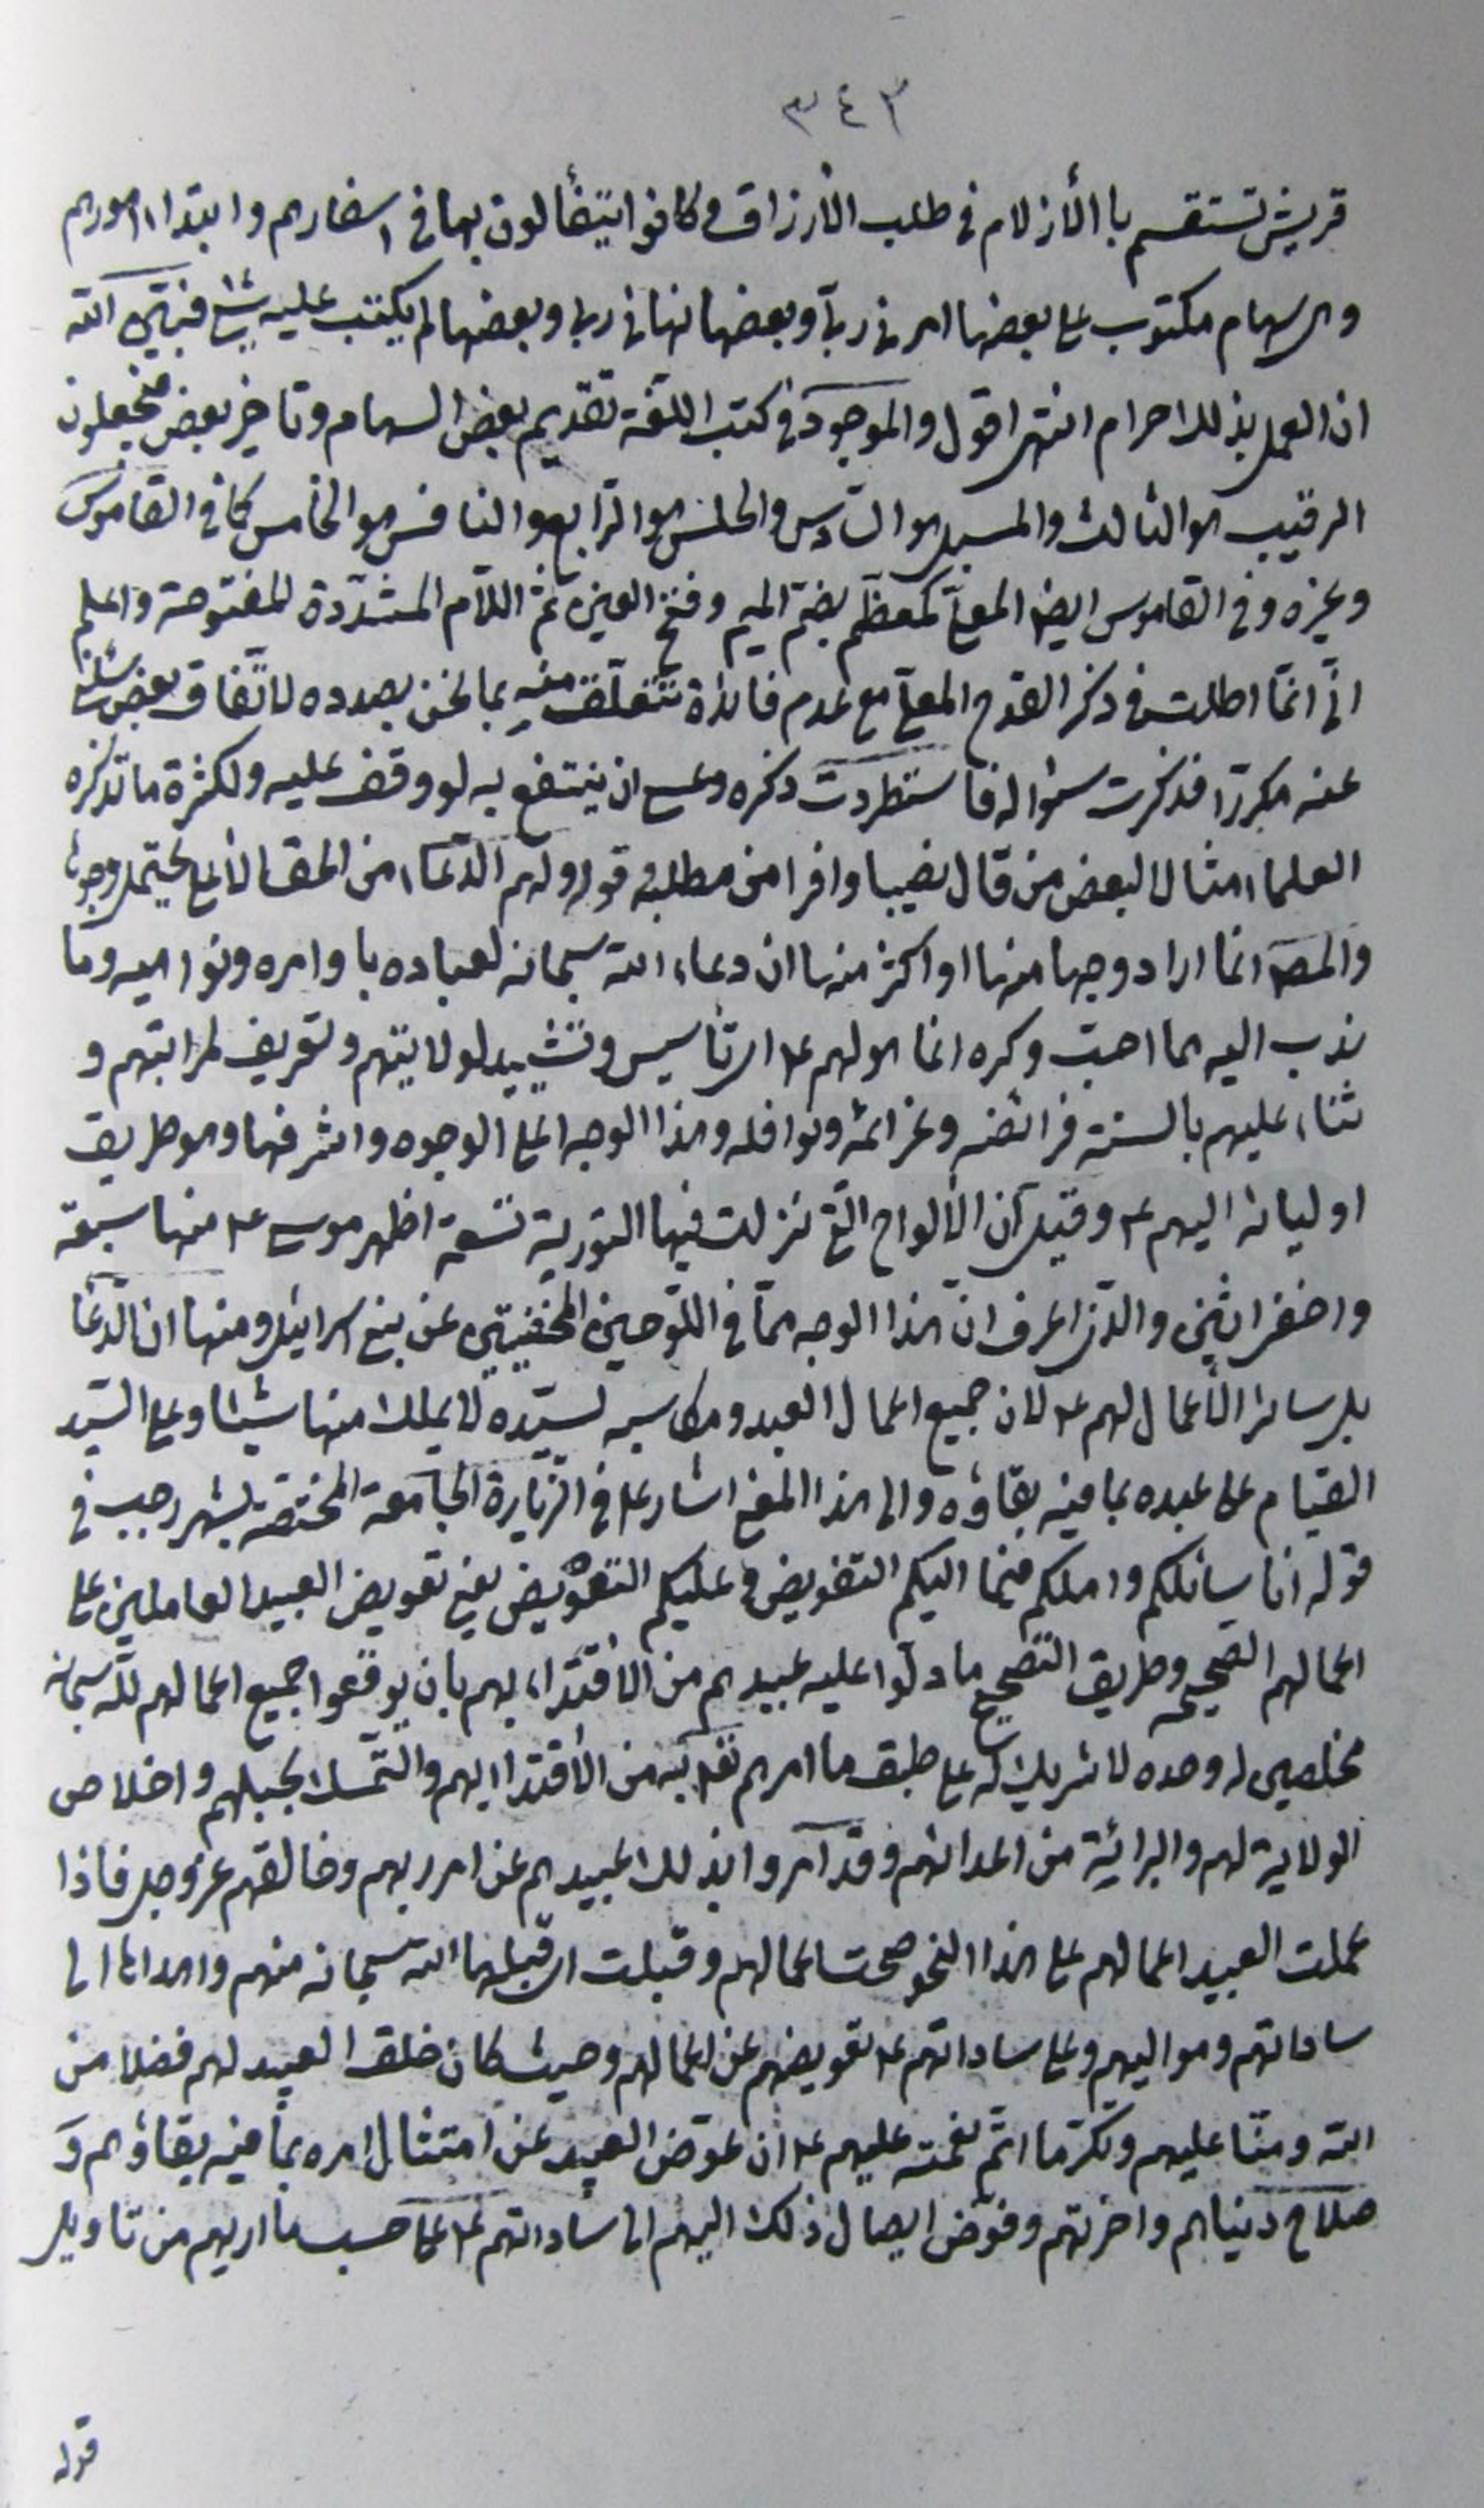 ٣٤٣
قريش تستقسم با الأزلام فى طلب الأرزاق وكانوا يتفألون بها فى اسفارهم وابتداء امورهم
وهى سهام مكتوب على بعضها امرنى ربى وبعضها نهانى ربى وبعضها لم يكتب عليه شئ فبيّن الله
ان العمل بذلك حرام انتهى اقول والموجود فى كتب اللغة تقديم بعض السهام وتاخير بعض فيجعلون
الرقيب هو الثالث والمسبل هو السّادس والحلس هو الرّابع والنافس هو الخامس كما فى القاموس
وغيره وفى القاموس ايضا المعلّى كمعظّم بضمّ الميم وفتح العين ثمّ اللاّم المشدّدة المفتوحة واعلم
انّى انّما اطلت فى ذكر القدح المعلّى مع عدم فائدة تتعلّق منه بما نحن بصدده لاتّفاق بعض سئلنى
عنه مكررّا فذكرت سؤاله فاستطردت ذكره وعسى ان ينتفع به لو وقف عليه ولكثرة ما تذكره
العلماء مثالا لبعض من قال نصيبا وافرا من مطلبه قوله ولهم الدّعاء من الحق الأعلى يحتمل وجوها
والمصـ انما اراد وجها منها او اكثر منها ان دعاء الله سبحانه لعباده باوامره ونواهيه وما
ندب اليه مما احبّ وكره انما هو لهم عـ اى تأسيس وتشييد لولايتهم وتعريف لمراتبهم و
ثناء عليهم بالسنة فرائضه وعزائمه ونوافله وهذا الوجه اعلى الوجوه واشرفها وهو طريق
اوليائه اليهم عـ وقيل ان الألواح التى نزلت فيها التورية تسعة اظهر موسى عـ منها سبعة
واخفى اثنين والذى اعرف انّ هذا الوجه ممّا فى اللّوحين المخفيّين عن بنى اسرائيل ومنها ان الدّعاء
بل سائر الأعمال لهم عـ لان جميع اعمال العبد ومكاسبه لسيّده لا يملك منها شيئا وعلى السيّد
القيام على عبده بما فيه بقاؤه والى هذا المعنى اشار عـ فى الزّيارة الجامعة المختصّة بشهر رجب فى
قوله انا سائلكم واملكم فيما اليكم التفويض وعليكم التعويض يعنى تعويض العبيد العاملين على
اعمالهم الصحيحه وطريق التصحيح ما دلّوا عليه عبيدهم من الأقتداء بهم بان يوقعوا جميع اعمالهم للّه سبحانه
مخلصين له وحده لا شريك له على طبق ما امرهم تعـ به من الأقتداء بهم والتمّسك بحبلهم واخلاص
الولاية لهم والبرائة من اعدائهم وقد امروا بذلك عبيدهم عن امر ربهم وخالقهم عزّ وجل فاذا
عملت العبيد اعمالهم على هذا النحو صحت اعمالهم وقبلت اى قبلها الله سبحانه منهم واهداها الى
ساداتهم ومواليهم وعلى ساداتهم عـ تعويضهم عن اعمالهم وحيث كان خلق العبيد لهم فضلا من
الله ومنّا عليهم وتكرّما اتمّ نعمته عليهم عـ ان عوّض العبيد عن امتثال امره بما فيه بقاؤهم و
صلاح دنياهم واخرتهم وفوّض ايصال ذلك اليهم الى ساداتهم عـ على حسب ما اريهم من تاويل
قوله